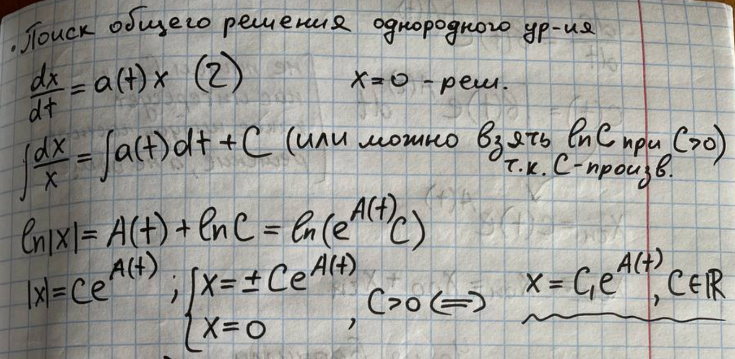 . Поиск общего решения однородного ур-ия
dx/dt = a(t)x (2) x=0 - реш.
∫dx/x = ∫a(t)dt + C (или можно взять lnC при C>0)
т.к. C-произв.
ln|x| = A(t) + lnC = ln(e^A(t) C)
|x| = Ce^A(t) ; { x = ± Ce^A(t)
x = 0 , C>0 ⟺ x = C₁e^A(t), C∈ℝ